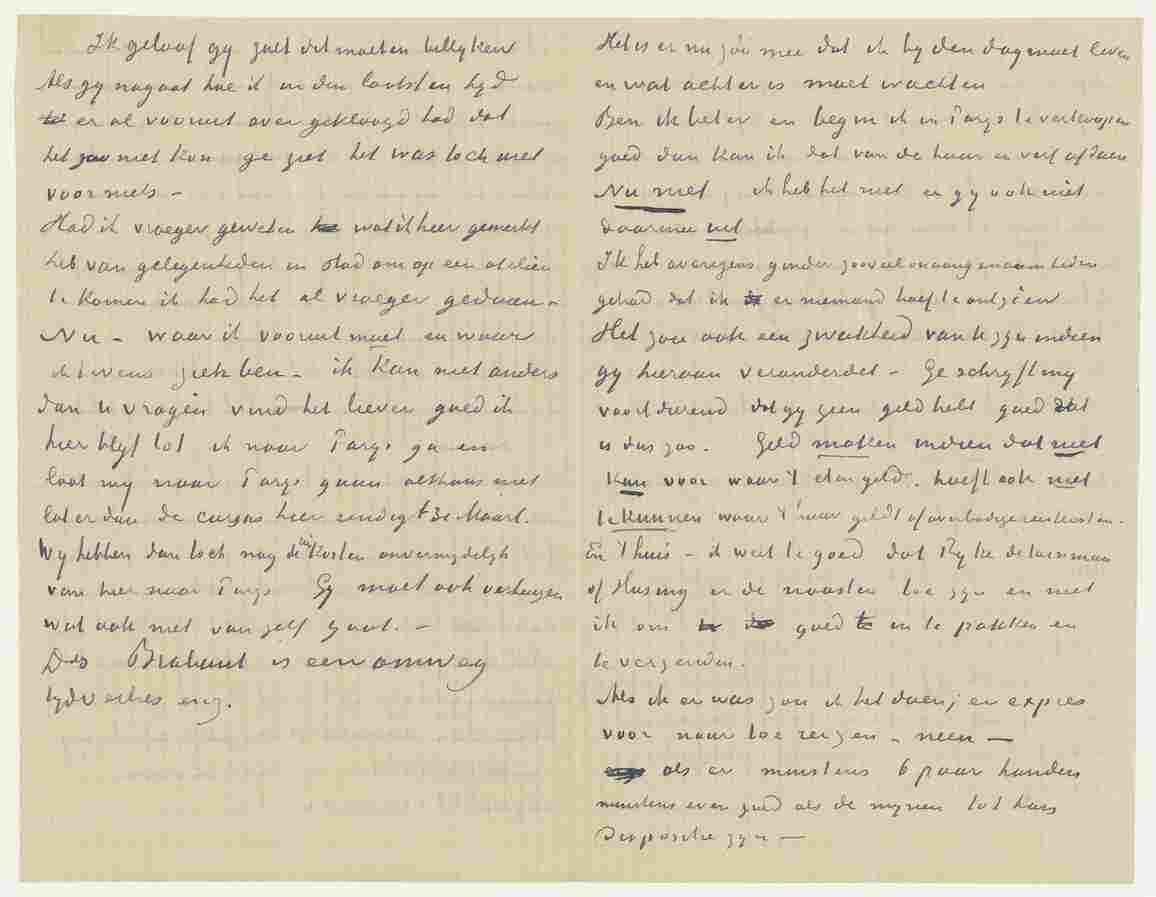 Ik geloof gy zult dit moeten billyken
Als gy nagaat hoe ik in den laatsten tyd
er al vooruit over geklaagd had dat
het zoo niet kon ge ziet het was toch niet
voor niets –
Had ik vroeger geweten wat ik hier gemerkt
heb van gelegenheden in stad om op een atelier
te komen ik had het al vroeger gedaan –
Nu – waar ik vooruit moet en waar
ik tevens ziek ben – ik kan niet anders
dan u vragen vind het liever goed ik
hier blyf tot ik naar Parys ga en
laat my naar Parys gaan althans niet
later dan de cursus hier eindigt 31 Maart.
Wy hebben dan toch nog de kosten onvermydelyk
van hier naar Parys Gy moet ook verhuizen
wat ook niet van zelf gaat. –
Dus Brabant is een omweg
tydverlies enz.
Het is er nu zóó mee dat ik by den dag moet leven
en wat achter is moet wachten
Ben ik beter en begin ik in Parys te verkoopen
goed dan kan ik dat van de huur en verf afdoen
Nu niet ik heb het niet en gy ook niet
daarmee uit
Ik heb overigens ginder zooveel onaangenaamheden
gehad dat ik er niemand hoef te ontzien
Het zou ook een zwakheid van U zyn indien
gy hieraan veranderdet – Ge schryft my
voortdurend dat gy geen geld hebt goed dat
is dus zoo. Geld maken indien dat niet
kan voor waar 't eten geldt, hoeft ook niet
te kunnen waar 't huur geldt of overbodige reiskosten.
En 'thuis – ik weet te goed dat Ryke de timmerman
of Hus my er de naasten toe zyn en niet
ik om goed in te pakken en
te verzenden.
Als ik er was zou ik het doen; er expres
voor naar toe reizen – neen —
als er minstens 6 paar handen
minstens even goed als de mynen tot haar
dispositie zyn —